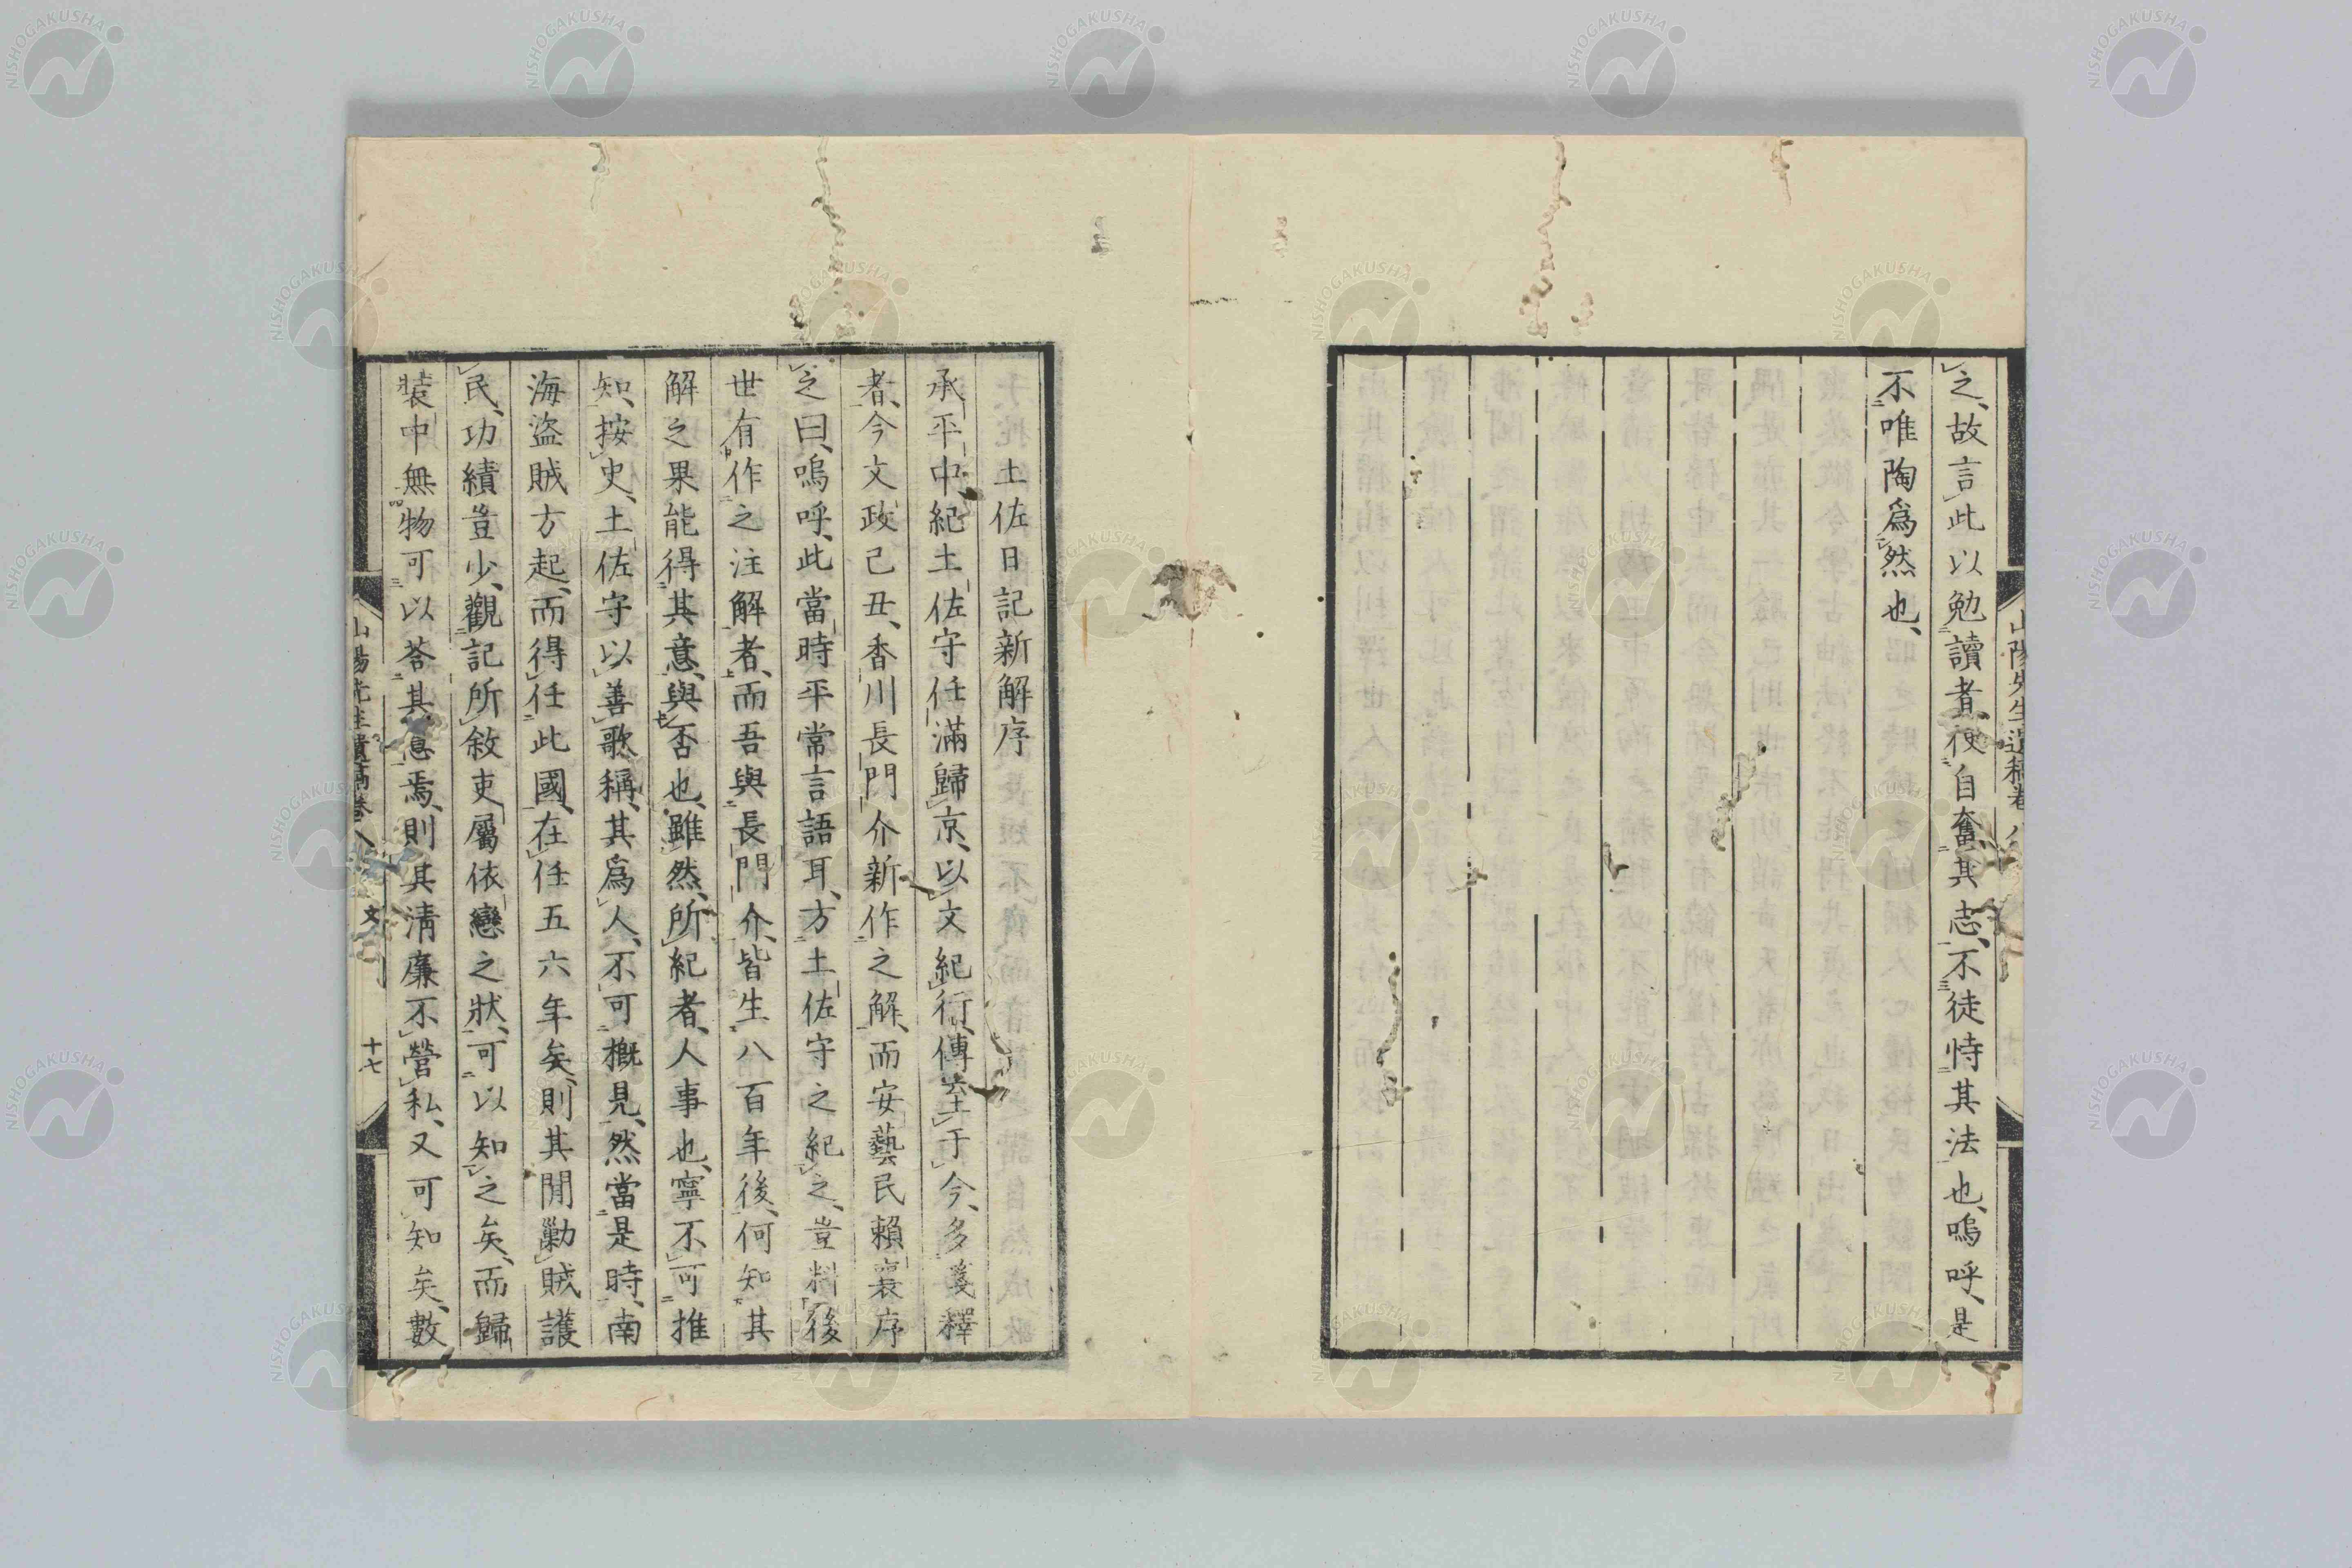 之、故言此以勉讀者、使自奮其志、不徒恃其法也、嗚呼、是
不唯陶爲然也、
土佐日記新解序
承平中紀土佐守任滿歸京、以文紀行、傳至于今、多箋釋
者、今文政己丑、香川長門介新作之解、而安藝民賴襄序
之曰、嗚呼、此當時平常言語耳、方土佐守之紀之、豈料後
世有作之注解者、而吾與長門介、皆生八百年後、何知其
解之果能得其意與否也、雖然、所紀者、人事也、寧不可推
知、按史、土佐守以善歌稱、其爲人、不可概見、然當是時、南
海盜賊方起、而得任此國、在任五六年矣、則其閒勦賊護
民、功績豈少、觀記所敘吏屬依戀之狀、可以知之矣、而歸
裝中無物可以荅其意焉、則其淸廉不營私、又可知矣、數
山陽先生遺稿卷八
文
十七
山陽先生遺稿卷八
NISHOGAKUSHA